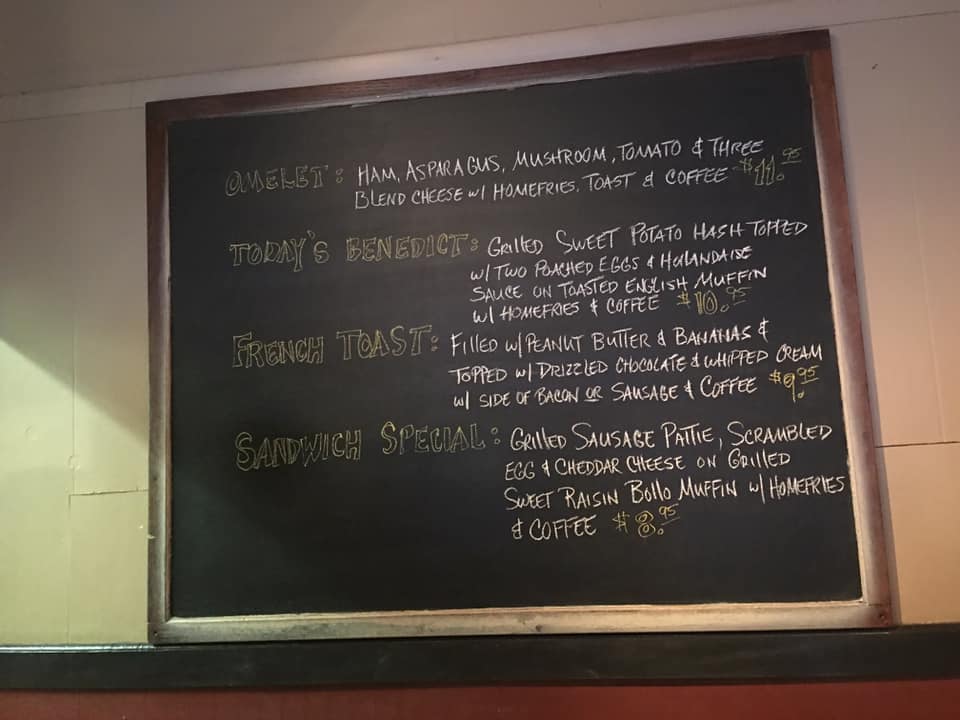 OMELET: HAM, ASPARAGUS, MUSHROOM, TOMATO & THREE
BLEND CHEESE w/ HOMEFRIES, TOAST & COFFEE $11.95
TODAY'S BENEDICT: GRILLED SWEET POTATO HASH TOPPED
w/ TWO POACHED EGGS & HOLANDAISE
SAUCE ON TOASTED ENGLISH MUFFIN
w/ HOMEFRIES & COFFEE $10.95
FRENCH TOAST: FILLED w/ PEANUT BUTTER & BANANAS &
TOPPED w/ DRIZZLED CHOCOLATE & WHIPPED CREAM
w/ SIDE OF BACON OR SAUSAGE & COFFEE $9.95
SANDWICH SPECIAL: GRILLED SAUSAGE PATTIE, SCRAMBLED
EGG & CHEDDAR CHEESE ON GRILLED
SWEET RAISIN BOLLO MUFFIN w/ HOMEFRIES
& COFFEE $8.95